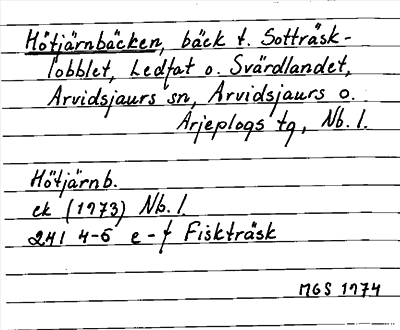 Hötjärnbäcken, bäck t. Sotträsk-
lobblet, Ledfat o. Svärdlandet,
Arvidsjaurs sn, Arvidsjaurs o.
Arjeplogs tg, Nb. l.
Hötjärnb.
ek (1973) Nb. l.
24I 4-5 e-f Fiskträsk
MGS 1974